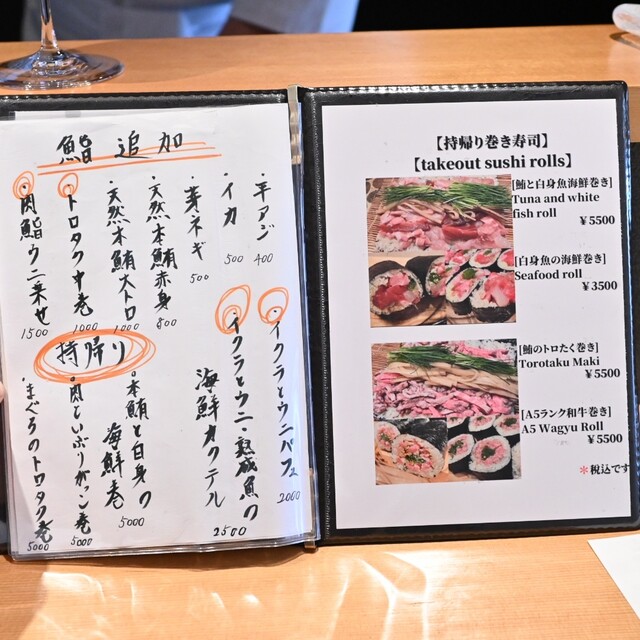 鮨 追加
・平アジ 400
・イカ 500
・芽ネギ 500
・天然本鮪赤身 800
・天然本鮪大トロ 1,000
・トロタク中巻 1,000
・肉鮨ウニ乗せ 1500
・イクラとウニパフェ 2000
・イクラとウニ・熟成魚の
海鮮カクテル 2500
持帰り
・本鮪と白身の
海鮮巻 5000
・肉といぶりがっこ巻 5000
・まぐろのトロタク巻 5000
【持帰り巻き寿司】
【takeout sushi rolls】
[鮪と白身魚海鮮巻き]
Tuna and white
fish roll
¥5500
[白身魚の海鮮巻き]
Seafood roll
¥3500
[鮪のトロたく巻き]
Torotaku Maki
¥5500
[A5ランク和牛巻き]
A5 Wagyu Roll
¥5500
＊税込です